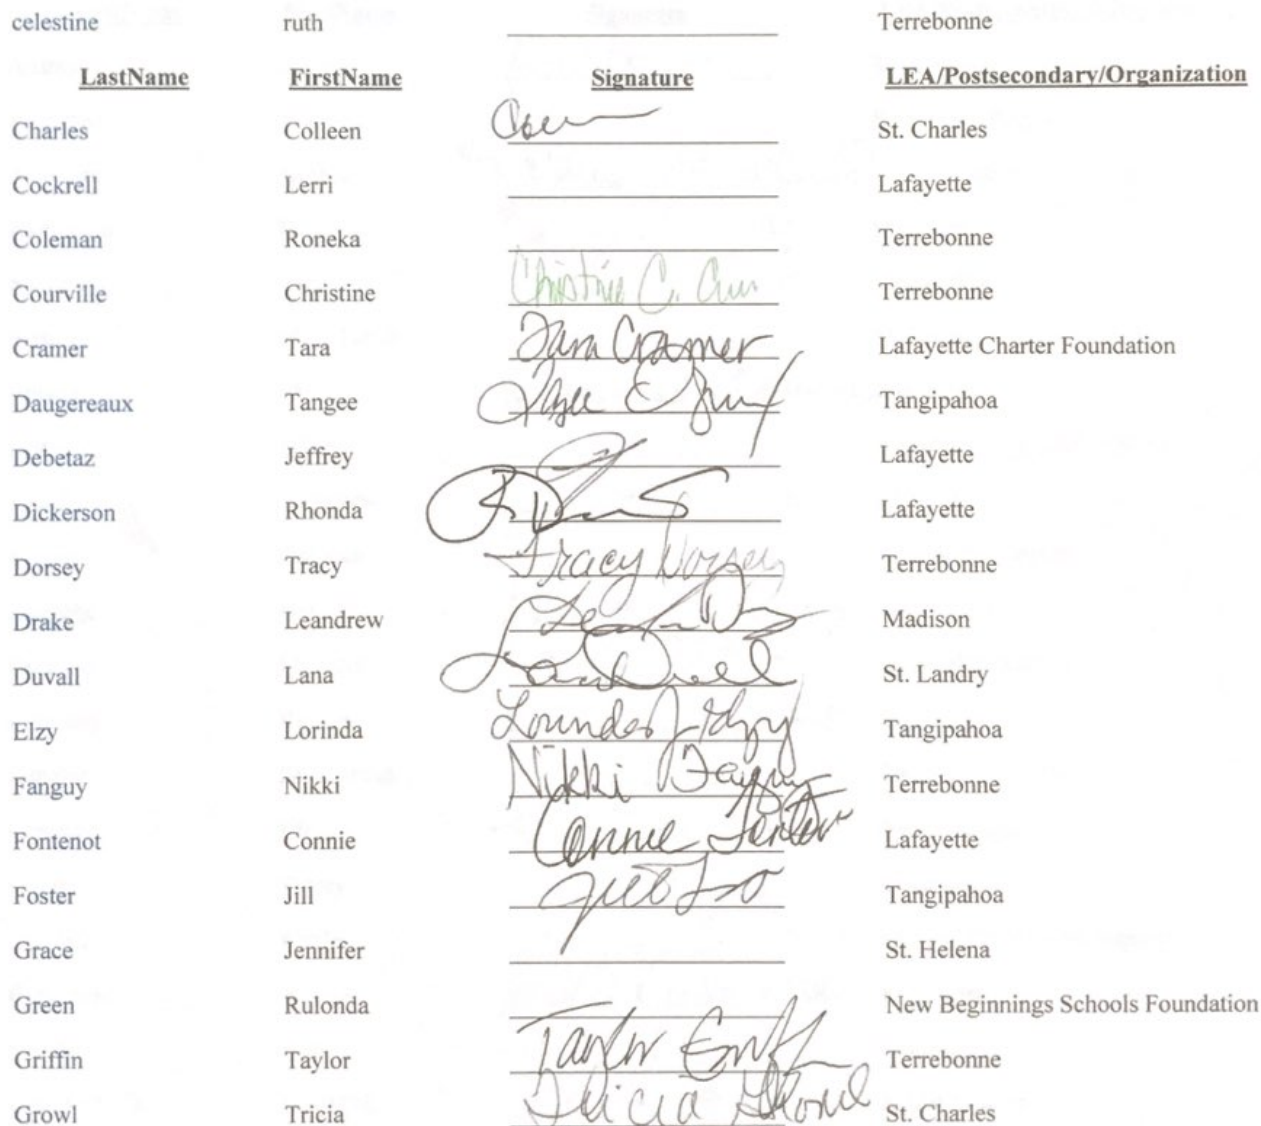 celestine ruth Terrebonne
LastName FirstName Signature LEA/Postsecondary/Organization
Charles Colleen St. Charles
Cockrell Lerri Lafayette
Coleman Roneka Terrebonne
Courville Christine Christine C. Terrebonne
Cramer Tara Tara Cramer Lafayette Charter Foundation
Daugereaux Tangee Tangipahoa
Debetaz Jeffrey Lafayette
Dickerson Rhonda Lafayette
Dorsey Tracy Tracy Dorsey Terrebonne
Drake Leandrew Madison
Duvall Lana Lana Duvall St. Landry
Elzy Lorinda Elzy Tangipahoa
Fanguy Nikki Nikki Fanguy Terrebonne
Fontenot Connie Connie Lafayette
Foster Jill Jill Tangipahoa
Grace Jennifer St. Helena
Green Rulonda New Beginnings Schools Foundation
Griffin Taylor Taylor Terrebonne
Growl Tricia Tricia Growl St. Charles